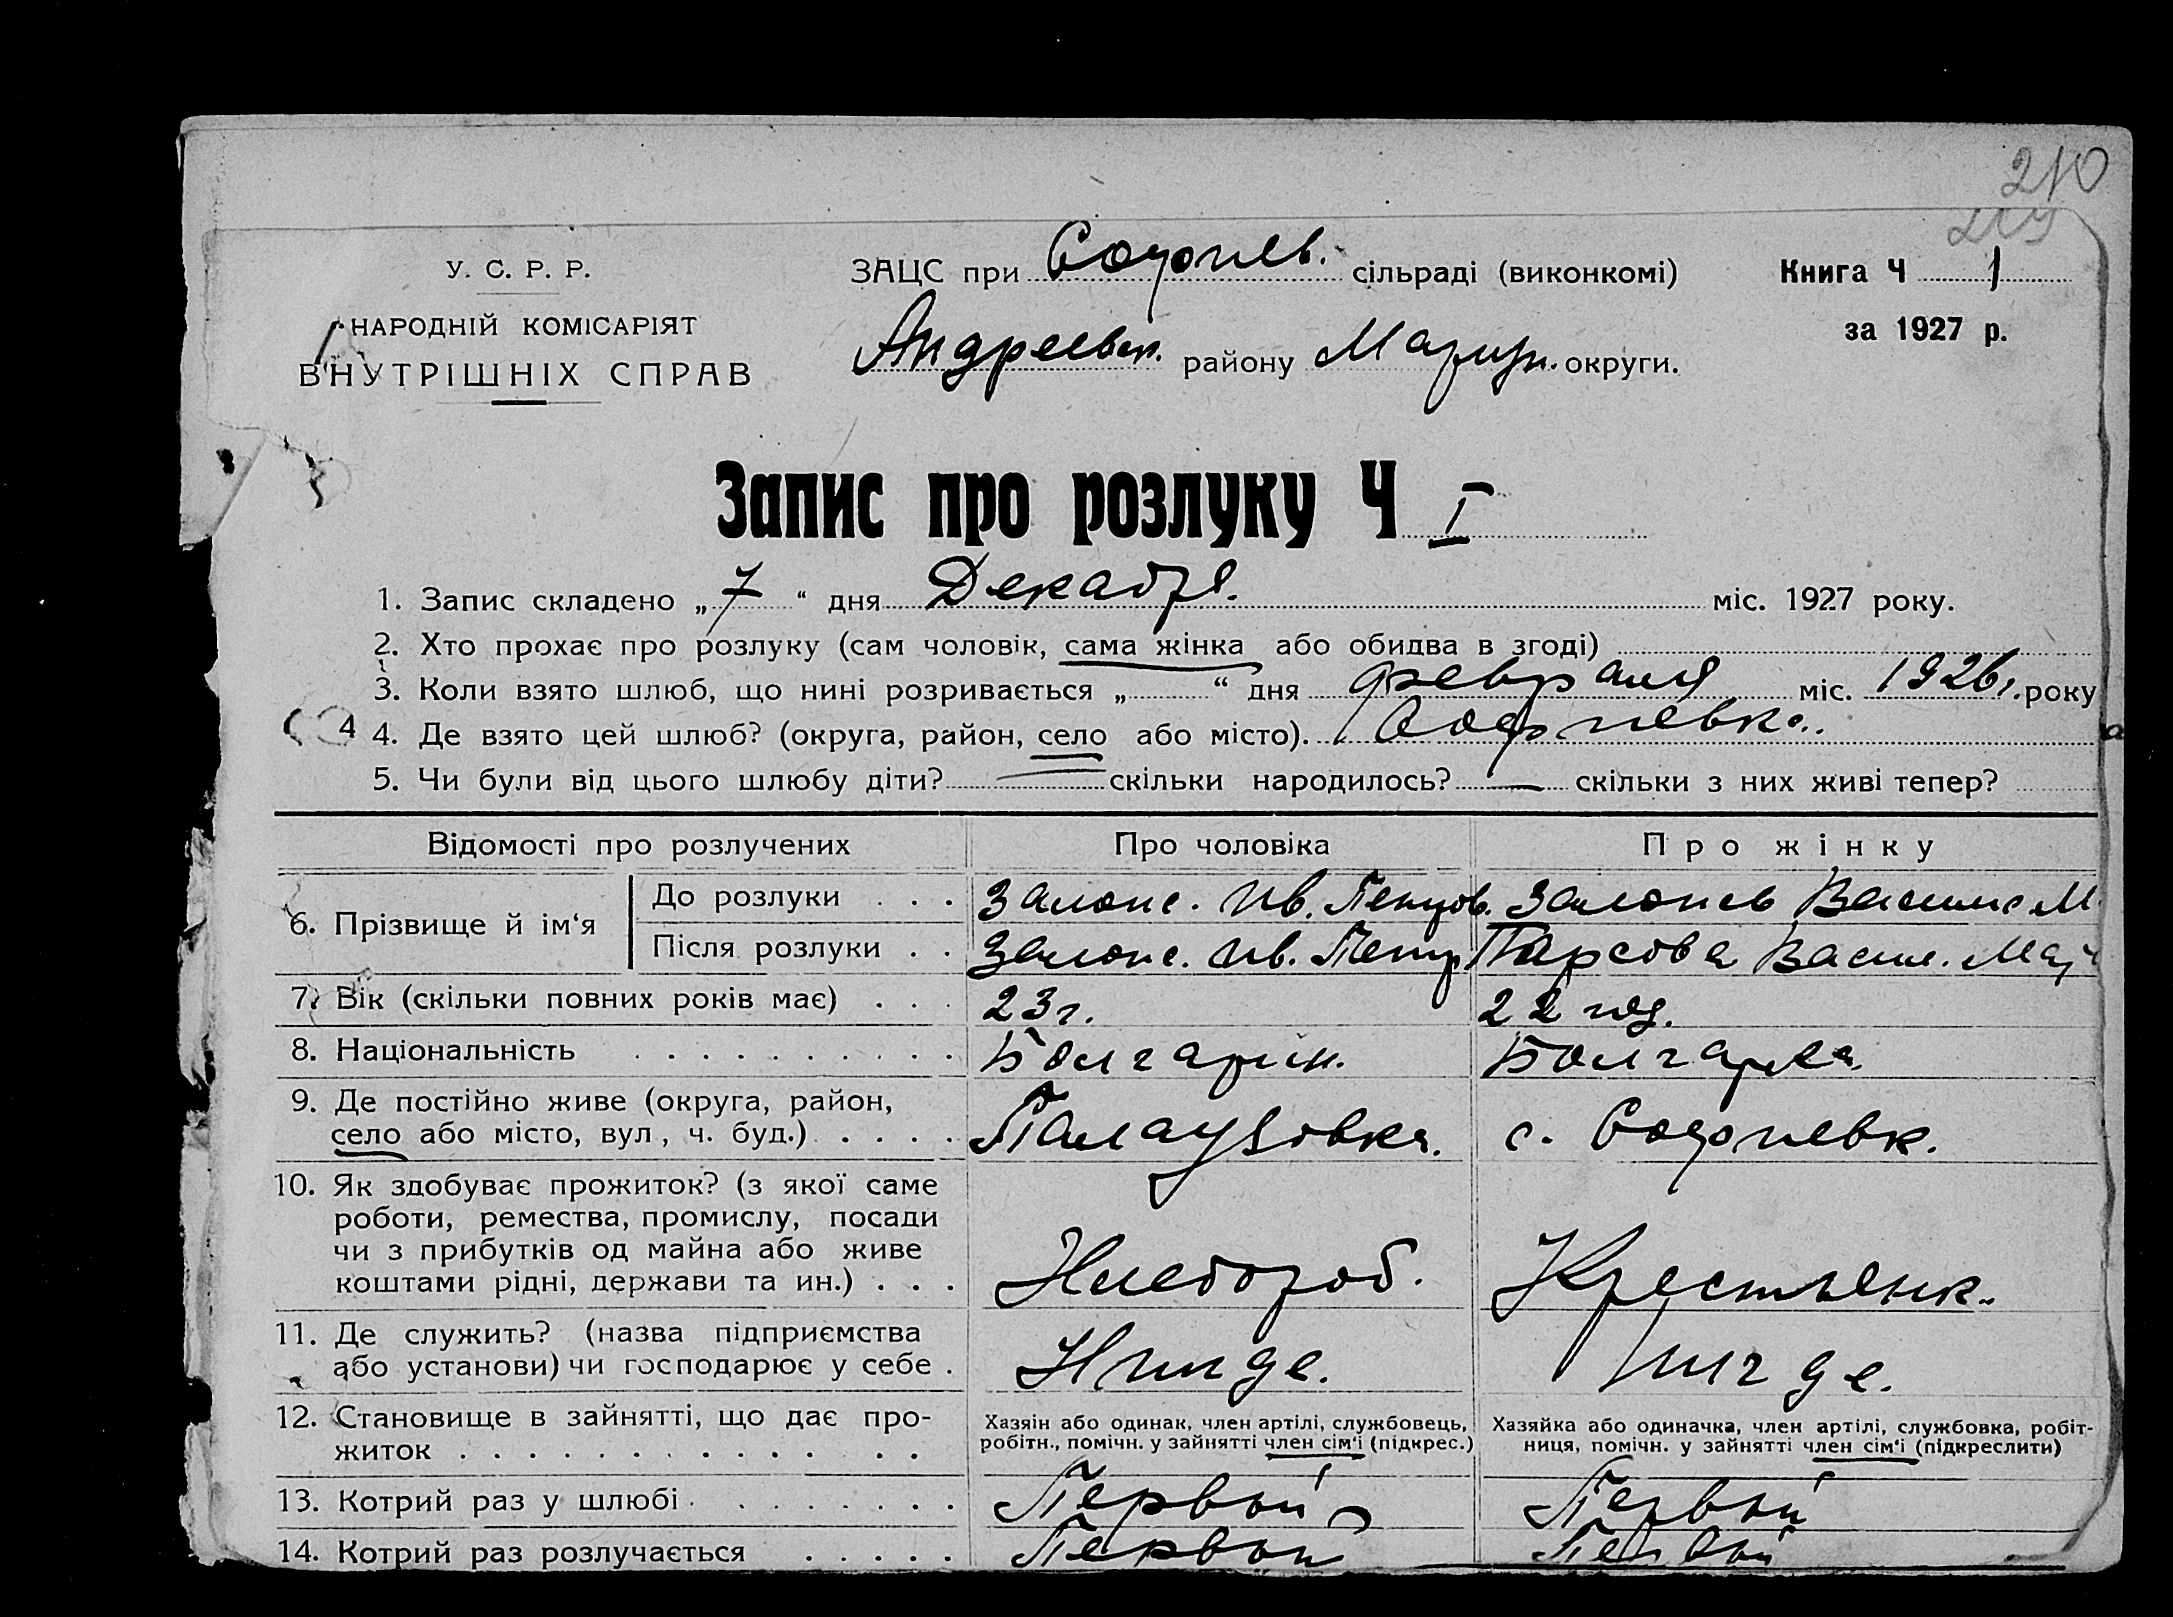 210
219
У. С. Р. Р.
НАРОДНІЙ КОМІСАРІЯТ
ВНУТРІШНІХ СПРАВ
ЗАЦС при Софиев. сільраді (виконкомі)
Андреевск. району Мариуп. округи.
Книга Ч 1
за 1927 р.
Запис про розлуку Ч I
1. Запис складено „ 7 “ дня Декабря. міс. 1927 року.
2. Хто прохає про розлуку (сам чоловік, сама жінка або обидва в згоді)
3. Коли взято шлюб, що нині розривається „ “ дня февраля міс. 1926 г. року
4 4. Де взято цей шлюб? (округа, район, село або місто). Софиевк.
5. Чи були від цього шлюбу діти? — скільки народилось? — скільки з них живі тепер?
Відомості про розлучених Про чоловіка Про жінку
6. Прізвище й ім‘я
До розлуки . . . Ив. Петров. Васил М.
Після розлуки . . Ив. Петр Парсова Васил. Мар
7. Вік (скільки повних років має) . . . 23 г. 22 год.
8. Національність . . . . . . . . . . Болгарин. Болгарка.
9. Де постійно живе (округа, район,
село або місто, вул, ч. буд.) . . . . Палаузовка. с. Софиевк.
10. Як здобуває прожиток? (з якої саме
роботи, ремества, промислу, посади
чи з прибутків од майна або живе
коштами рідні, держави та ин.) . . . Хлебороб. Крестьянк.
11. Де служить? (назва підприємства
або установи) чи господарює у себе . Нигде. Нигде.
12. Становище в зайнятті, що дає про-
житок . . . . . . . . . . . .
Хазяін або одинак, член артілі, службовець,
робітн., помічн. у зайнятті член сім‘і (підкрес.)
Хазяйка або одиначка, член артілі, службовка, робіт-
ниця, помічн. у зайнятті член сім‘і (підкреслити)
13. Котрий раз у шлюбі . . . . . . . . Первый Первый
14. Котрий раз розлучається . . . . . Первый Первый